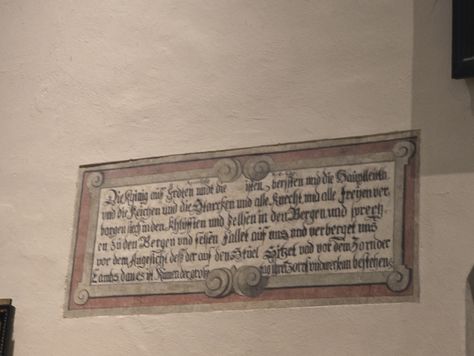 Die König auf Erden undt die iſten, Oberſten und die Haupileüta
und die Reichen und die Starcken und alle Knecht, und alle freijen ver
bargen ſich in den Klüfften und felſen in den Bergen, und ſprech
en zu den Bergen und felſen fallet auf uns und verberget uns
vor dem Angeſicht deß der auf dem Stuel Sitzet und vor dem Zorn der
Lambs dan es iſt Kumen der groſſ ag ihres Zorſ und wer kan beſtehen